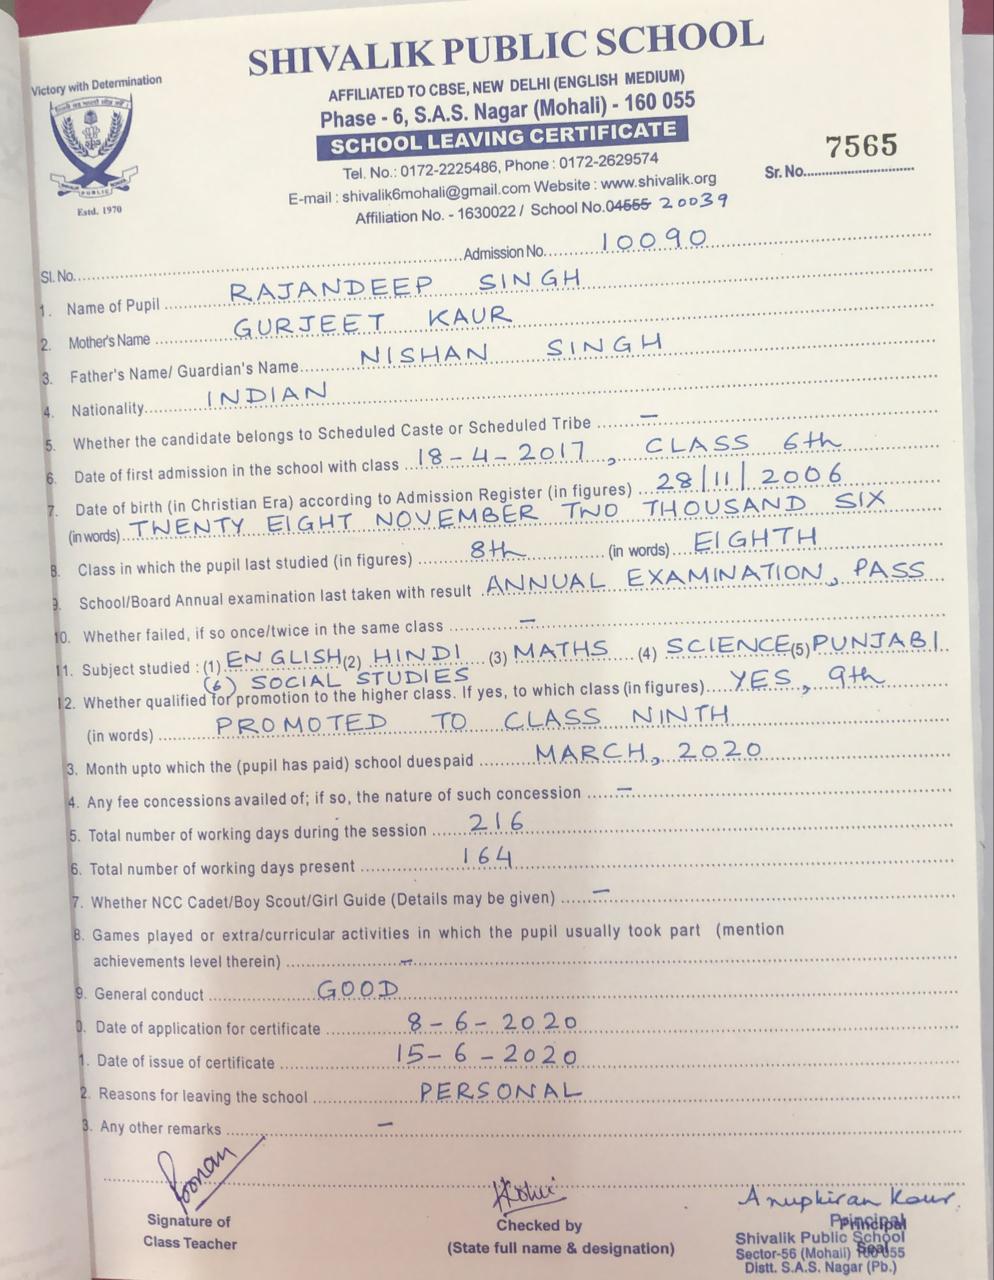 SHIVALIK PUBLIC SCHOOL
Victory with Determination
AFFILIATED TO CBSE, NEW DELHI (ENGLISH MEDIUM)
Phase - 6, S.A.S. Nagar (Mohali) - 160 055
SCHOOL LEAVING CERTIFICATE
7565
Sr. No.
Tel. No.: 0172-2225486, Phone : 0172-2629574
E-mail : shivalik6mohali@gmail.com Website : www.shivalik.org
Estd. 1970
Affiliation No. - 1630022 / School No. 04555 20039
Sl. No. Admission No. 10090
1. Name of Pupil RAJANDEEP SINGH
2. Mother's Name GURJEET KAUR
3. Father's Name/ Guardian's Name NISHAN SINGH
4. Nationality INDIAN
5. Whether the candidate belongs to Scheduled Caste or Scheduled Tribe —
6. Date of first admission in the school with class 18-4-2017, CLASS 6th
7. Date of birth (in Christian Era) according to Admission Register (in figures) 28/11/2006
(in words) TWENTY EIGHT NOVEMBER TWO THOUSAND SIX
8. Class in which the pupil last studied (in figures) 8th (in words) EIGHTH
9. School/Board Annual examination last taken with result ANNUAL EXAMINATION, PASS
10. Whether failed, if so once/twice in the same class —
11. Subject studied : (1) ENGLISH (2) HINDI (3) MATHS (4) SCIENCE (5) PUNJABI
(6) SOCIAL STUDIES
12. Whether qualified for promotion to the higher class. If yes, to which class (in figures) YES, 9th
(in words) PROMOTED TO CLASS NINTH
3. Month upto which the (pupil has paid) school duespaid MARCH, 2020
4. Any fee concessions availed of; if so, the nature of such concession —
5. Total number of working days during the session 216
6. Total number of working days present 164
7. Whether NCC Cadet/Boy Scout/Girl Guide (Details may be given) —
8. Games played or extra/curricular activities in which the pupil usually took part (mention
achievements level therein) —
9. General conduct GOOD
0. Date of application for certificate 8-6-2020
1. Date of issue of certificate 15-6-2020
2. Reasons for leaving the school PERSONAL
3. Any other remarks —
Poonam
Anupkiran Kour
Signature of
Class Teacher
Checked by
(State full name & designation)
Principal
Shivalik Public School
Seal
Sector-56 (Mohali) 160055
Distt. S.A.S. Nagar (Pb.)